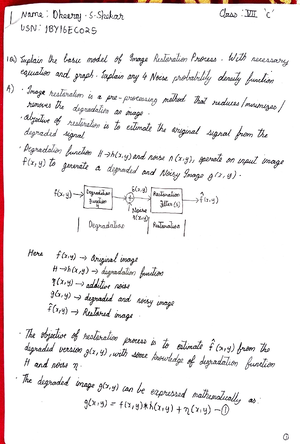 Name: Dheeraj - S - Shekar Class: VII 'C'
USN: 1BY16EC025
1a) Explain the basic model of Image Restoration Process. With necessary
equation and graph. Explain any 4 Noise probability density function
A) · Image restoration is a pre-processing method that reduces/minimizes/
removes the degradation on image.
· Objective of restoration is to estimate the original signal from the
degraded signal
· Degradation function H→h(x,y) and noise η(x,y), operate on input image
f(x,y) to generate a degraded and Noisy Image g(x,y).
f(x,y) → Degradation function H + g(x,y) Restoration filter(s) → f̂(x,y)
Noise
η(x,y)
Degradation Restoration
Here f(x,y) → Original image
H→h(x,y) → degradation function
η(x,y) → additive noise
g(x,y) → degraded and noisy image
f̂(x,y) → Restored image
· The objective of restoration process is to estimate f̂(x,y) from the
degraded version g(x,y), with some knowledge of degradation function
H and noise η.
· The degraded image g(x,y) can be expressed mathematically as:
g(x,y) = f(x,y)*h(x,y) + η(x,y) —①
①